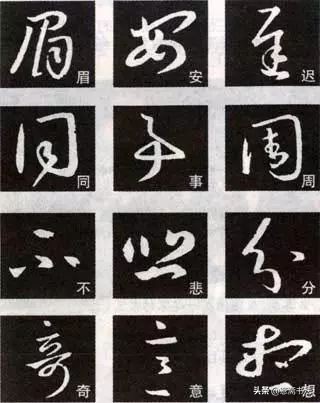 眉 安 迟
同 事 周
不 悲 分
奇 意 想
头条